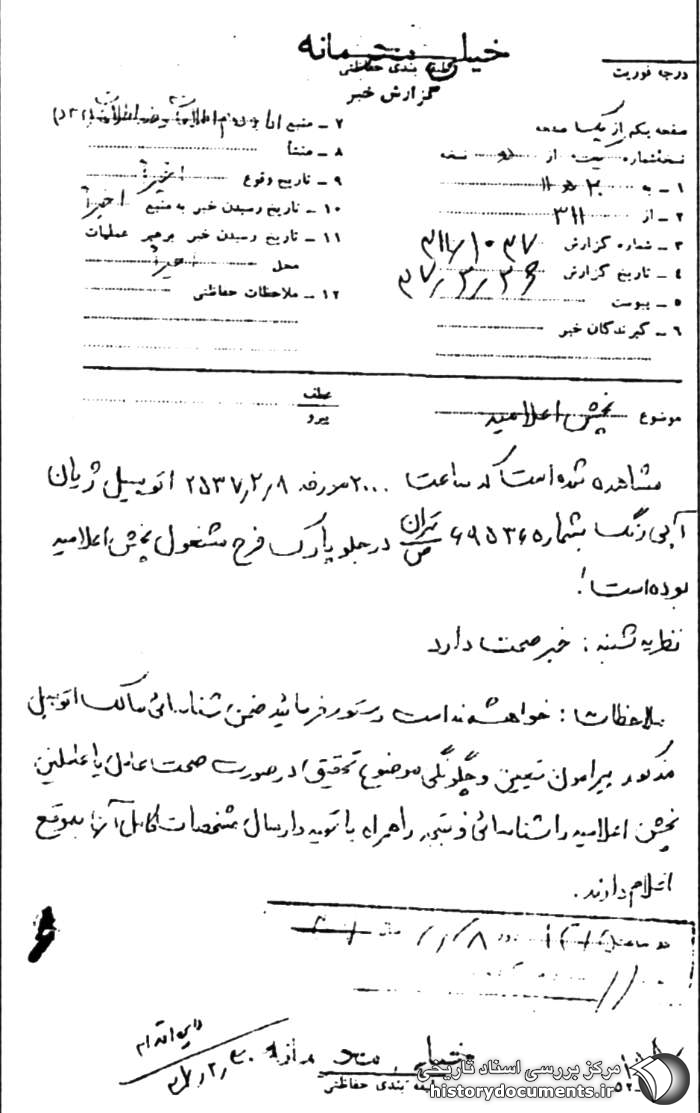 خیلی محرمانه
طبقه بندی حفاظتی
گزارش خبر
درجه فوریت
صفحه یکم از یک صفحه
نسخه شماره یک از دو نسخه
۱ - به ۲۰ ه ۱۱
۲ - از ۳۱۱
۳ - شماره گزارش
۴ - تاریخ گزارش
۵ - پیوست
۶ - گیرندگان خبر
۷ - منبع
۸ - منشأ
۹ - تاریخ وقوع اخیراً
۱۰ - تاریخ رسیدن خبر به منبع اخیراً
۱۱ - تاریخ رسیدن خبر برهبر عملیات
محل اخیراً
۱۲ - ملاحظات حفاظتی
موضوع پخش اعلامیه
عطف
پیرو
مشاهده شده است که ساعت ۲۰۰۰ مورخه ۲۵۳۷٫۲٫۸ اتومبیل ژیان
آبی رنگ بشماره ۶۹۵۳۶۵ تهران ص در جلو پارک فرح مشغول پخش اعلامیه
بوده است!
نظریه شنبه : خبر صحت دارد
ملاحظات : خواهشمند است دستور فرمائید ضمن شناسائی مالک اتومبیل
مذکور پیرامون تعیین و چگونگی موضوع تحقیق در صورت صحت عامل یا عاملین
پخش اعلامیه را شناسائی و نتیجه را همراه با تهیه و ارسال مشخصات کامل آنها بموقع
اعلام دارند.
خیلی محرمانه
طبقه بندی حفاظتی
مرکز بررسی اسناد تاریخی
historydocuments.ir